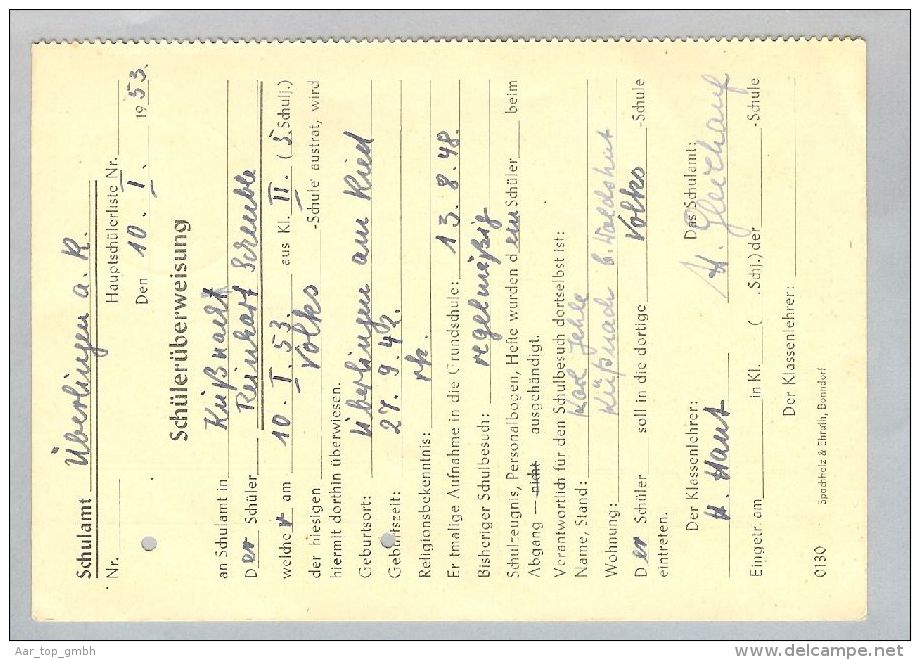 Schulamt Überlingen a. R.
Nr. Hauptschülerliste Nr.
Den 10. I. 1953.
Schülerüberweisung
an Schulamt in Küßnach
Der Schüler Reinhart
welcher am 10. I. 53. aus Kl. II. (5. Schulj.)
der hiesigen Volks -Schule austrat, wird
hiermit dorthin überwiesen.
Geburtsort: Überlingen am Ried
Geburtszeit: 27. 9. 42.
Religionsbekenntnis: rk.
Erstmalige Aufnahme in die Grundschule: 13. 8. 48.
Bisheriger Schulbesuch: regelmäßig
Schulzeugnis, Personalbogen, Hefte wurden dem Schüler beim
Abgang — nicht ausgehändigt.
Verantwortlich für den Schulbesuch dortselbst ist:
Name, Stand: Karl Jehle
Wohnung: Küßnach b. Waldshut
Der Schüler soll in die dortige Volks -Schule
eintreten.
Der Klassenlehrer: Das Schulamt:
Eingetr. am in Kl. ( . Schj.) der -Schule
Der Klassenlehrer:
0130 Spachholz & Ehrath, Bonndorf
Aar_top_gmbh
www.delcampe.net